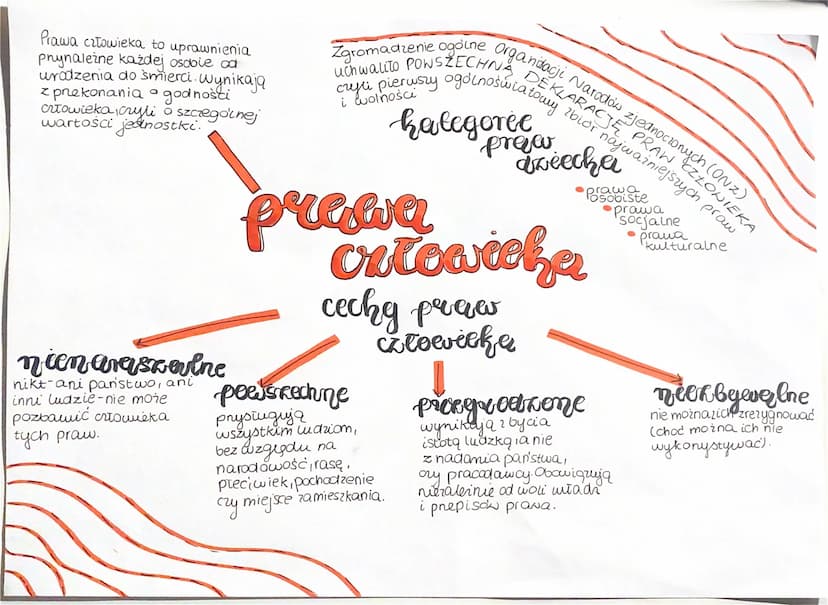 Prawa człowieka to uprawnienia
przynależne każdej osobie od
urodzenia do śmierci. Wynikają
z przekonania o godności
człowieka, czyli o szczególnej
wartości jednostki.
Zgromadzenie ogólne Organizacji Narodów zjednoczonych (ONZ)
uchwaliło POWSZECHNĄ DEKLARACJĘ PRAW CZŁOWIEKA
czyli pierwszy ogólnoświatowy zbiór najważniejszych praw
i wolności
kategorie
praw
dziecka
• prawa
osobiste
• prawa
socjalne
• prawa
kulturalne
prawa
człowieka
cechy praw
człowieka
nienaruszalne
nikt-ani państwo, ani
inni ludzie-nie może
pozbawić człowieka
tych praw.
powszechne
przysługują
wszystkim ludziom,
bez względu na
narodowość, rasę,
płeć, wiek, pochodzenie
czy miejsce zamieszkania.
przyrodzone
wynikają z bycia
istotą ludzką, a nie
z nadania państwa,
czy pracodawcy. Obowiązują
niezależnie od woli władz
i przepisów prawa.
niezbywalne
nie można z ich zrezygnować
(choć można ich nie
wykorzystywać).